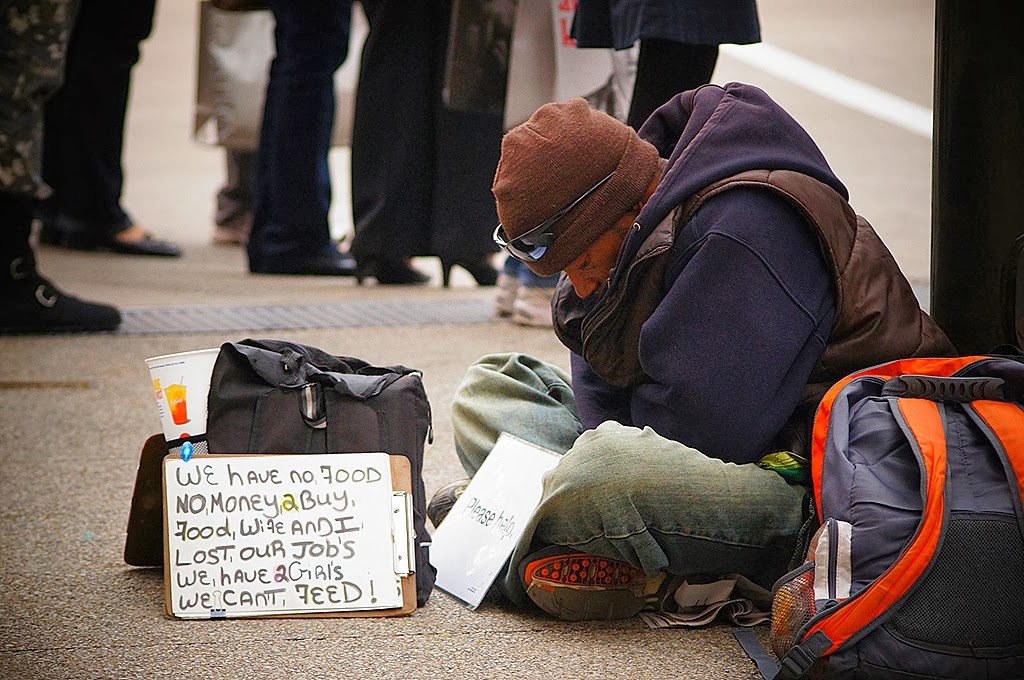 WE HAVE NO, FOOD
NO, MONEY, 2 BUY,
FOOD, WIFE AND I,
LOST, OUR JOB'S
WE, HAVE 2 GIRL'S
WE CANT, FEED!
Please help,